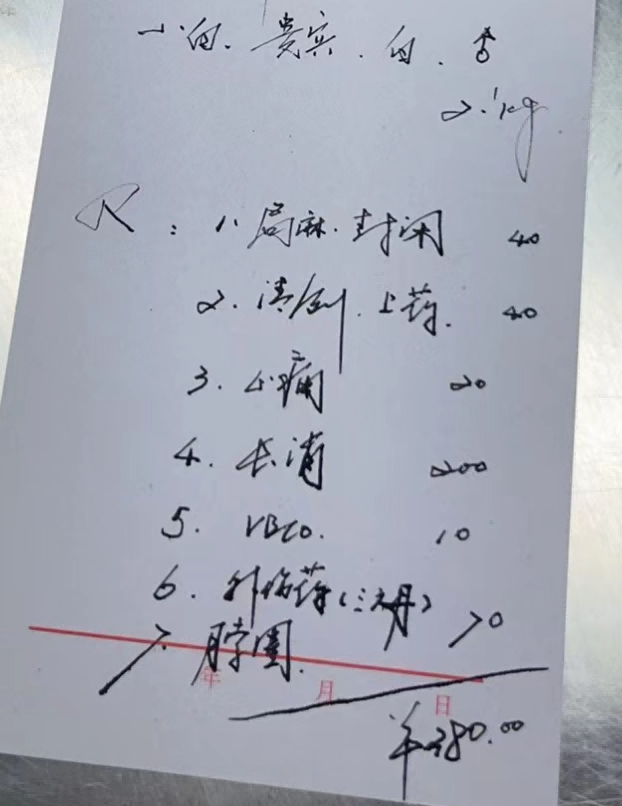 小白. 贵宾. 白. ♂
2.1kg
R: 1. 局麻. 封闭 40
2. 清创. 上药. 40
3. 止痛 20
4. 长消 200
5. VBCO. 10
6. 外伤药(三元丹) 70
7. 脖圈.
年 月 日
¥380.00